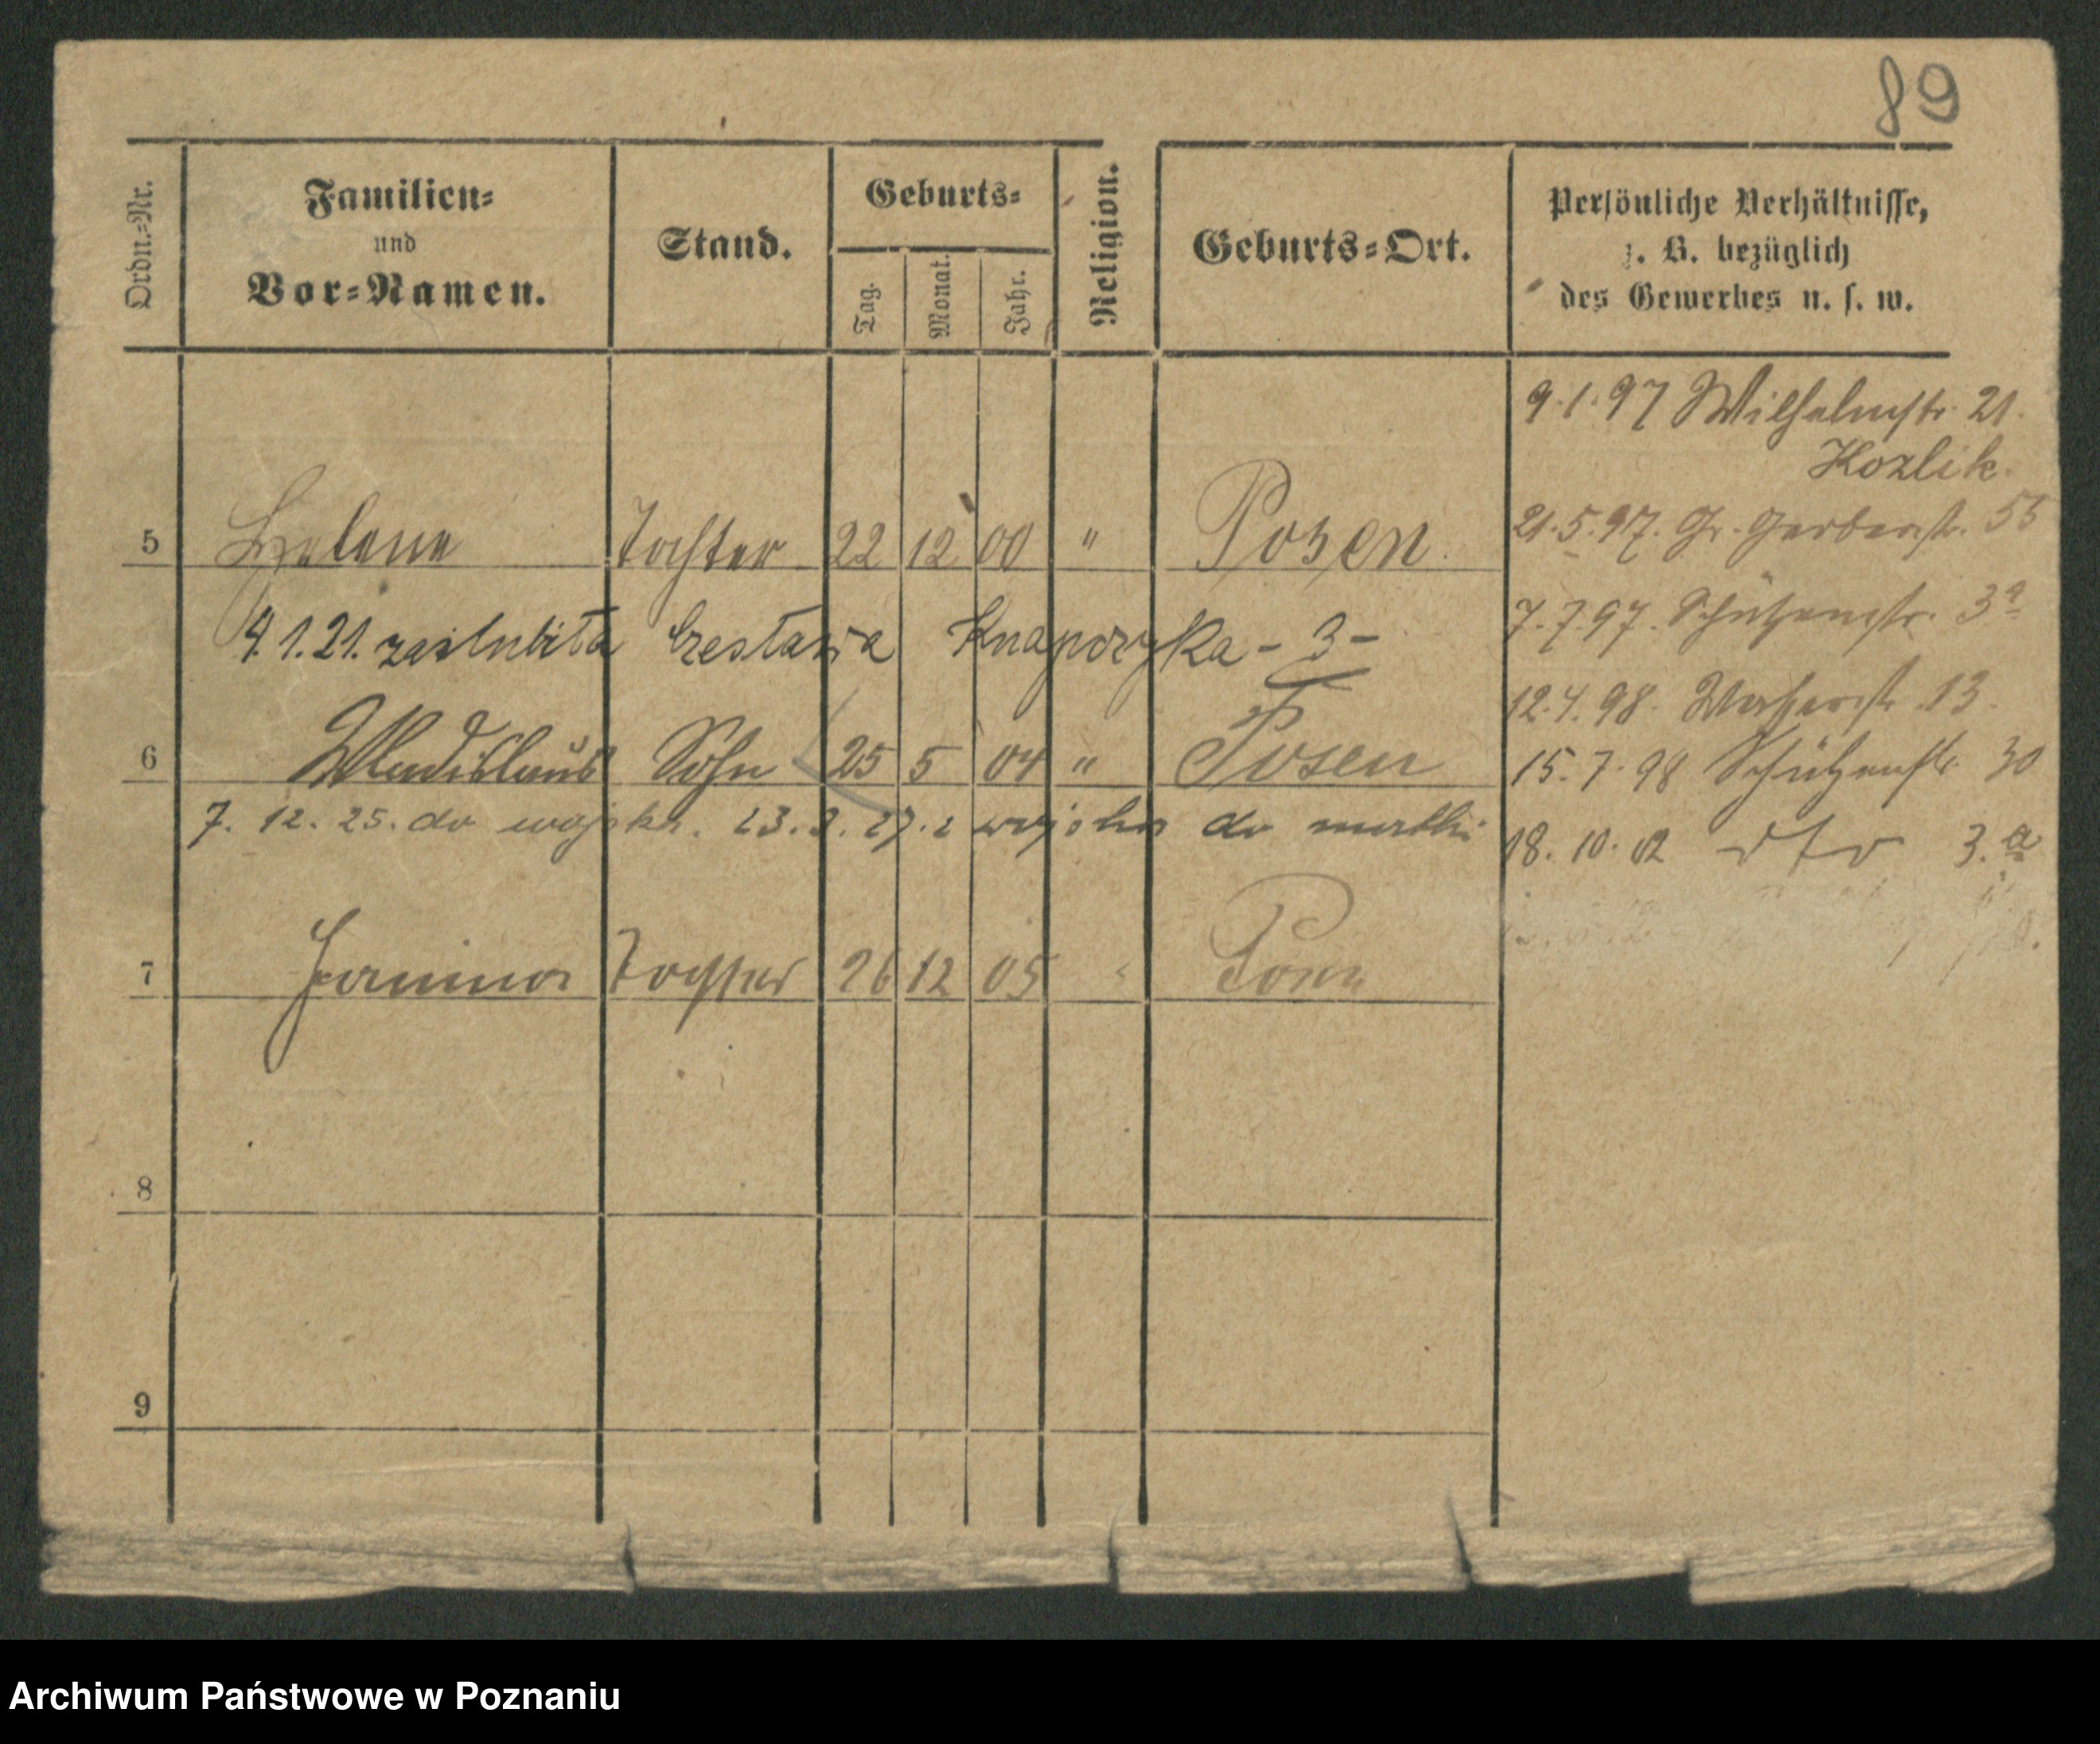 89
Ordn.-Nr.
Familien-
und
Vor-Namen.
Stand.
Geburts-
Tag.
Monat.
Jahr.
Religion.
Geburts-Ort.
Persönliche Verhältnisse,
z. B. bezüglich
des Gewerbes u. s. w.
9.1.97 Wilhelmstr. 21.
Kozlik.
5 Helene Tochter 22 12 00 " Posen.
21.5.97. Gr. Gerberstr. 55
4.1.21. zaślubiła Czesława Knapczyka - 3 -
7.7.97. Schützenstr. 3a
12.4.98. 13.
6 Wladislaus Sohn 25 5 04 " Posen
15.7.98 Schützenstr. 30
7. 12. 25. do wojska. 23.3.27. z wojska do matki
18. 10. 02 dto 3.a
7 Janina Tochter 26 12 05 " Posen
8
9
Archiwum Państwowe w Poznaniu